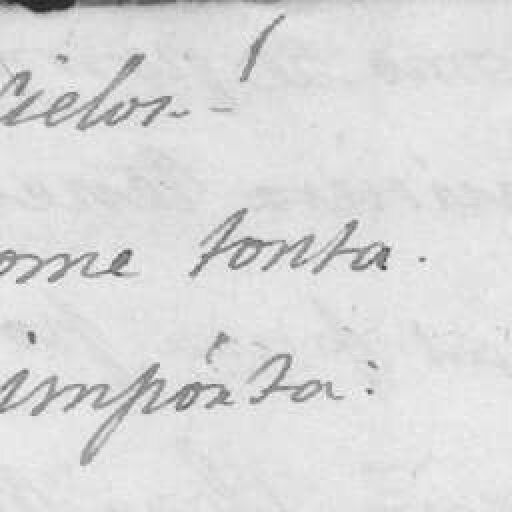 Cielos-!
ome tonta.
impórta: